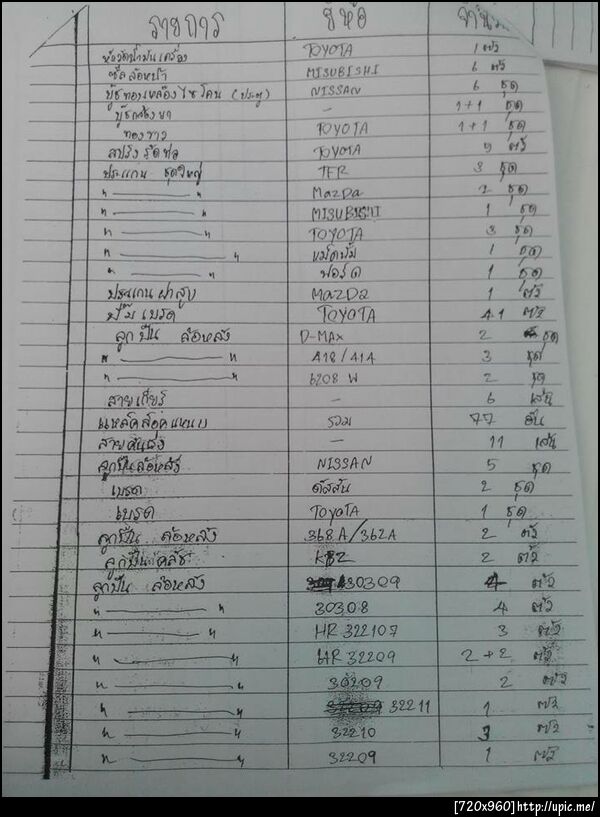 รายการ ยี่ห้อ จำนวน
ห้องวัดน้ำมันเครื่อง TOYOTA 1 ตัว
ซีลล้อหน้า MISUBISHI 6 ตัว
บู๊ชทองเหลืองไขโคน (ประตู) NISSAN 6 ชุด
— 1+1 ชุด
TOYOTA 1+1 ชุด
สปริงรัดท่อ TOYOTA 5 ตัว
ประแกน ชุดใหญ่ TFR 3 ชุด
" — " MaZDa 2 ชุด
" — " MISUBISHI 1 ชุด
" — " TOYOTA 3 ชุด
" — " 1 ชุด
" — " ฟอร์ด 1 ชุด
ประแกนฝาสูบ MaZDa 1 ตัว
ปั๊มเบรค TOYOTA 41 ตัว
ลูกปืน ล้อหลัง D-MAX 2 ชุด
" — " 418/414 3 ชุด
" — " 6208 W 2 ชุด
สายเกียร์ — 6 เส้น
แหล็คล็อคแหนบ รวม 77 อัน
สายคันเร่ง — 11 เส้น
ลูกปืนล้อหลัง NISSAN 5 ชุด
เบรค ดัสสัน 2 ชุด
เบรค TOYOTA 1 ชุด
ลูกปืน ล้อหลัง 368A/362A 2 ตัว
ลูกปืนคลัช KBZ 2 ตัว
ลูกปืน ล้อหลัง 30309 4 ตัว
" — " 30308 4 ตัว
" — " HR 322107 3 ตัว
" — " HR 32209 2+2 ตัว
" — " 30209 2 ตัว
" — " 32211 1 ตัว
" — " 32210 3 ตัว
" — " 32209 1 ตัว
[720x960]http://upic.me/